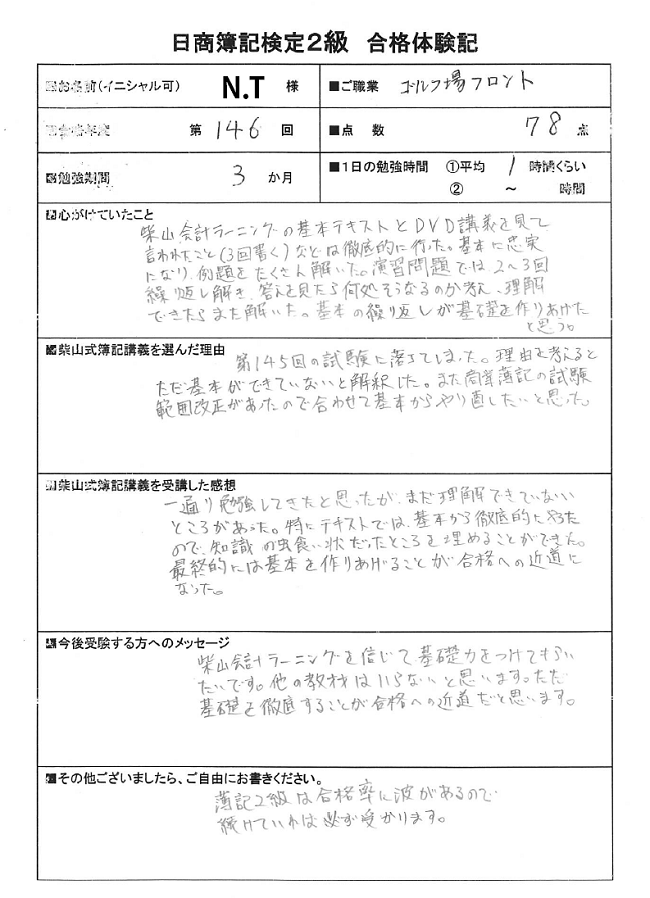 日商簿記検定2級 合格体験記
お名前(イニシャル可) N.T 様 ■ご職業 ゴルフ場フロント
合格年度 第146回 ■点数 78点
勉強期間 3か月 ■1日の勉強時間 ①平均 1 時間くらい
② ～ 時間
心がけていたこと
柴山会計ラーニングの基本テキストとDVD講義を見て
言われたこと(3回書く)などは徹底的に行った。基本に忠実
になり、例題をたくさん解いた。演習問題では、2～3回
繰り返し解き、答えを見たら何処そうなるのか考え、理解
できたらまた解いた。基本の繰り返しが基礎を作りあげた
と思う。
柴山式簿記講義を選んだ理由
第145回の試験に落ちてしまった。理由を考えると
ただ基本ができていないと解釈した。また商業簿記の試験
範囲改正があったので合わせて基本からやり直したいと思った。
柴山式簿記講義を受講した感想
一通り勉強してきたと思ったが、まだ理解できていない
ところがあった。特にテキストでは、基本から徹底的にやった
ので、知識の虫食い状だったところを埋めることができた。
最終的には基本を作りあげることが合格への近道に
なった。
今後受験する方へのメッセージ
柴山会計ラーニングを信じて基礎力をつけてもらい
たいです。他の教材はいらないと思います。ただ
基礎を徹底することが合格への近道だと思います。
■その他ございましたら、ご自由にお書きください。
簿記2級は合格率に波があるので
続けていれば必ず受かります。